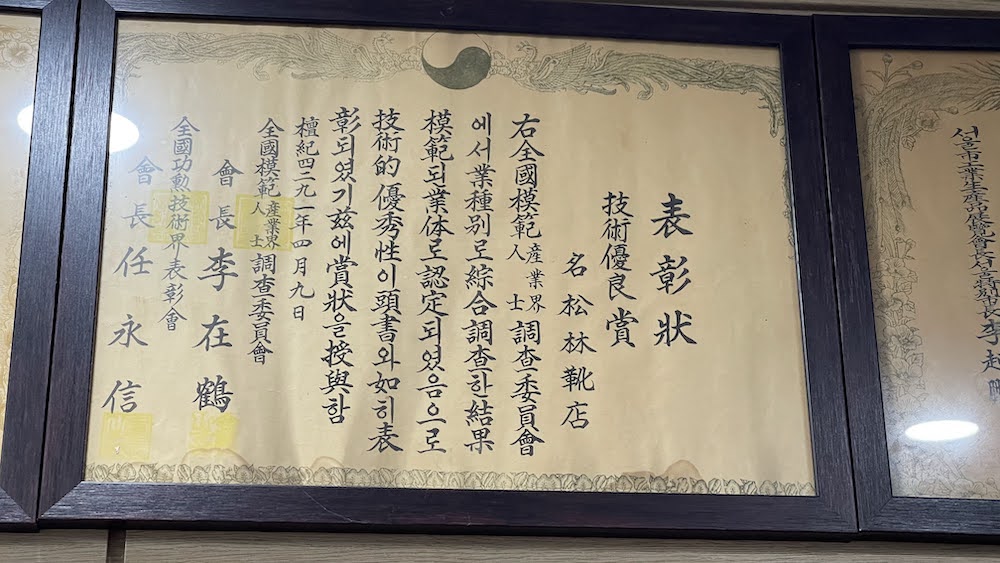 表彰狀
技術優良賞
名 松林靴店
右全國模範産業界人士調査委員會
에서業種別로綜合調査한結果
模範되業体로認定되였음으로
技術的優秀性이頭書와如히表
彰되였기玆에賞狀을授與함
檀紀四二九一年四月九日
全國模範産業界人士調査委員會
會長李在鶴
全國功勲技術界表彰會
會長任永信
서울市工業生産品展覽會長서울特別市長李起鵬